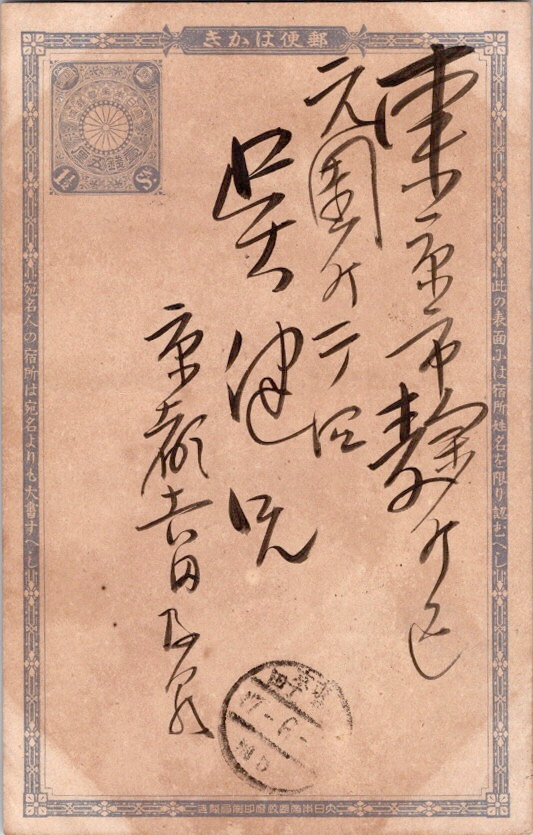 郵便はかき
此の表面には宿所姓名を限り認むへし
東京市麹町区
元園町
呉健兄
京都吉田
宛名人の宿所は宛名よりも大書すへし
1½ Sn
大日本帝國政府印刷局製造